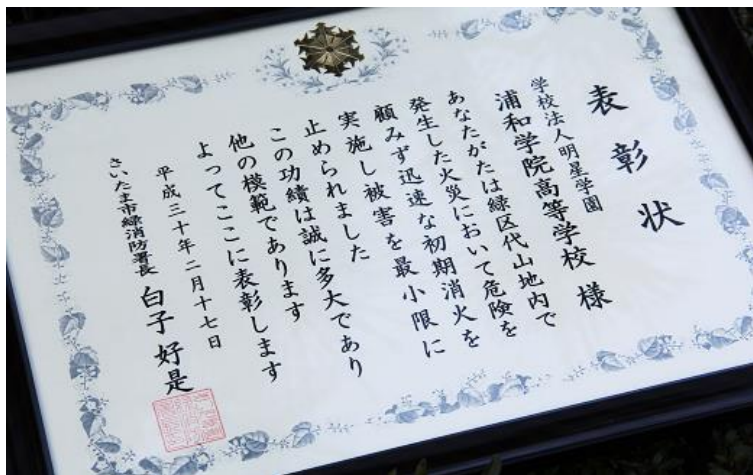 表彰状
学校法人明星学園
浦和学院高等学校様
あなたがたは緑区代山地内で
発生した火災において危険を
顧みず迅速な初期消火を
実施し被害を最小限に
止められました
この功績は誠に多大であり
他の模範であります
よってここに表彰します
平成三十年二月十七日
さいたま市緑消防署長 白子好是